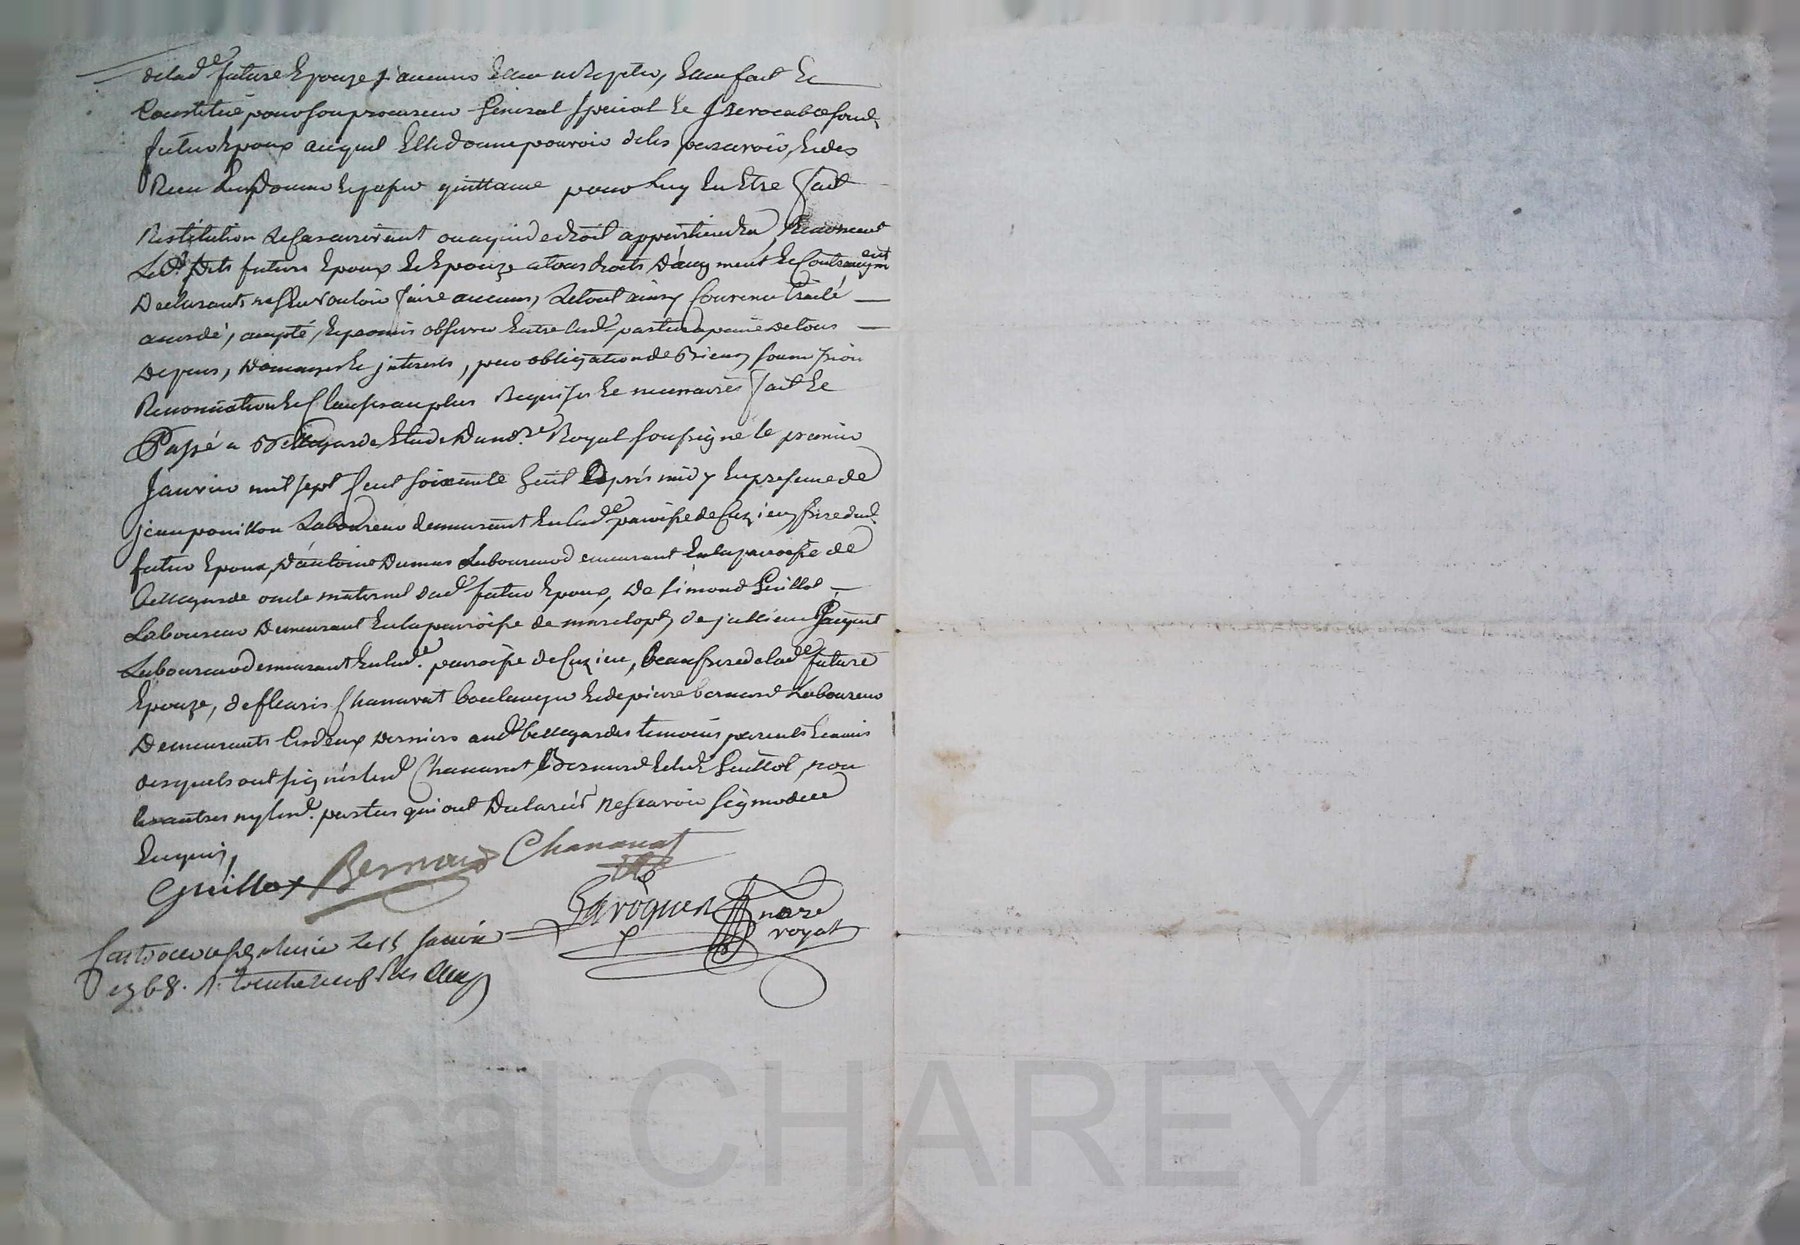 delad.e future Epouze
Constitué pour son procureur Général Special et Irrevocable sond.
futur Epoux auquel Elle donne pouvoir de les percevoir, et des
Receu En donner et passer quittance pour luy En Etre fait
Restitution Le cas arrivant ou a qui de droit appartiendra, Renoncent
Lesd. futurs Epoux et Epouze a tous droits D'augment et Contreaugment
Declarants ne scavoir vouloir faire aucuns, Le tout ainsy Convenu traité
accordé, accepté, et promis observer Entre lesd. parties a peine de tous
Depens, Domages et jnterets, par obligation de Biens, soumission
Renonciation et Clauses au plus Requises et necessaires fait et
Passé a Bellegarde Etude Du no.re Royal soussigné le premier
Janvier mil sept Cent soixante huit apres midy En presence de
jean pouillon Laboureur demeurant En lad.e paroisse de Cuzieu, frere dud.
futur Epoux, D'antoine Dumas Laboureur demeurant En la paroisse de
Bellegarde oncle maternel dud. futur Epoux, De Simond Guillot
Laboureur Demeurant En la paroisse de marclopt, de jullien
Laboureur demeurant En lad.e paroisse de Cuzieu, beaufrere de lad.e future
Epouze, de fleuris Chanavat boulanger Et de pierre bernard Laboureur
Demeurants Ces deux Derniers aud. bellegarde temoins parents Et amis
desquels ont signé led. Chanavat, Bernard Et led. Guillot, non
les autres ny lesd. parties qui ont Declaré Ne scavoir signer de ce
Enquis,
Guillot Bernard Chanavat
Laroque no.re
royal
le 15 Janvier
1768.
Pascal CHAREYRON